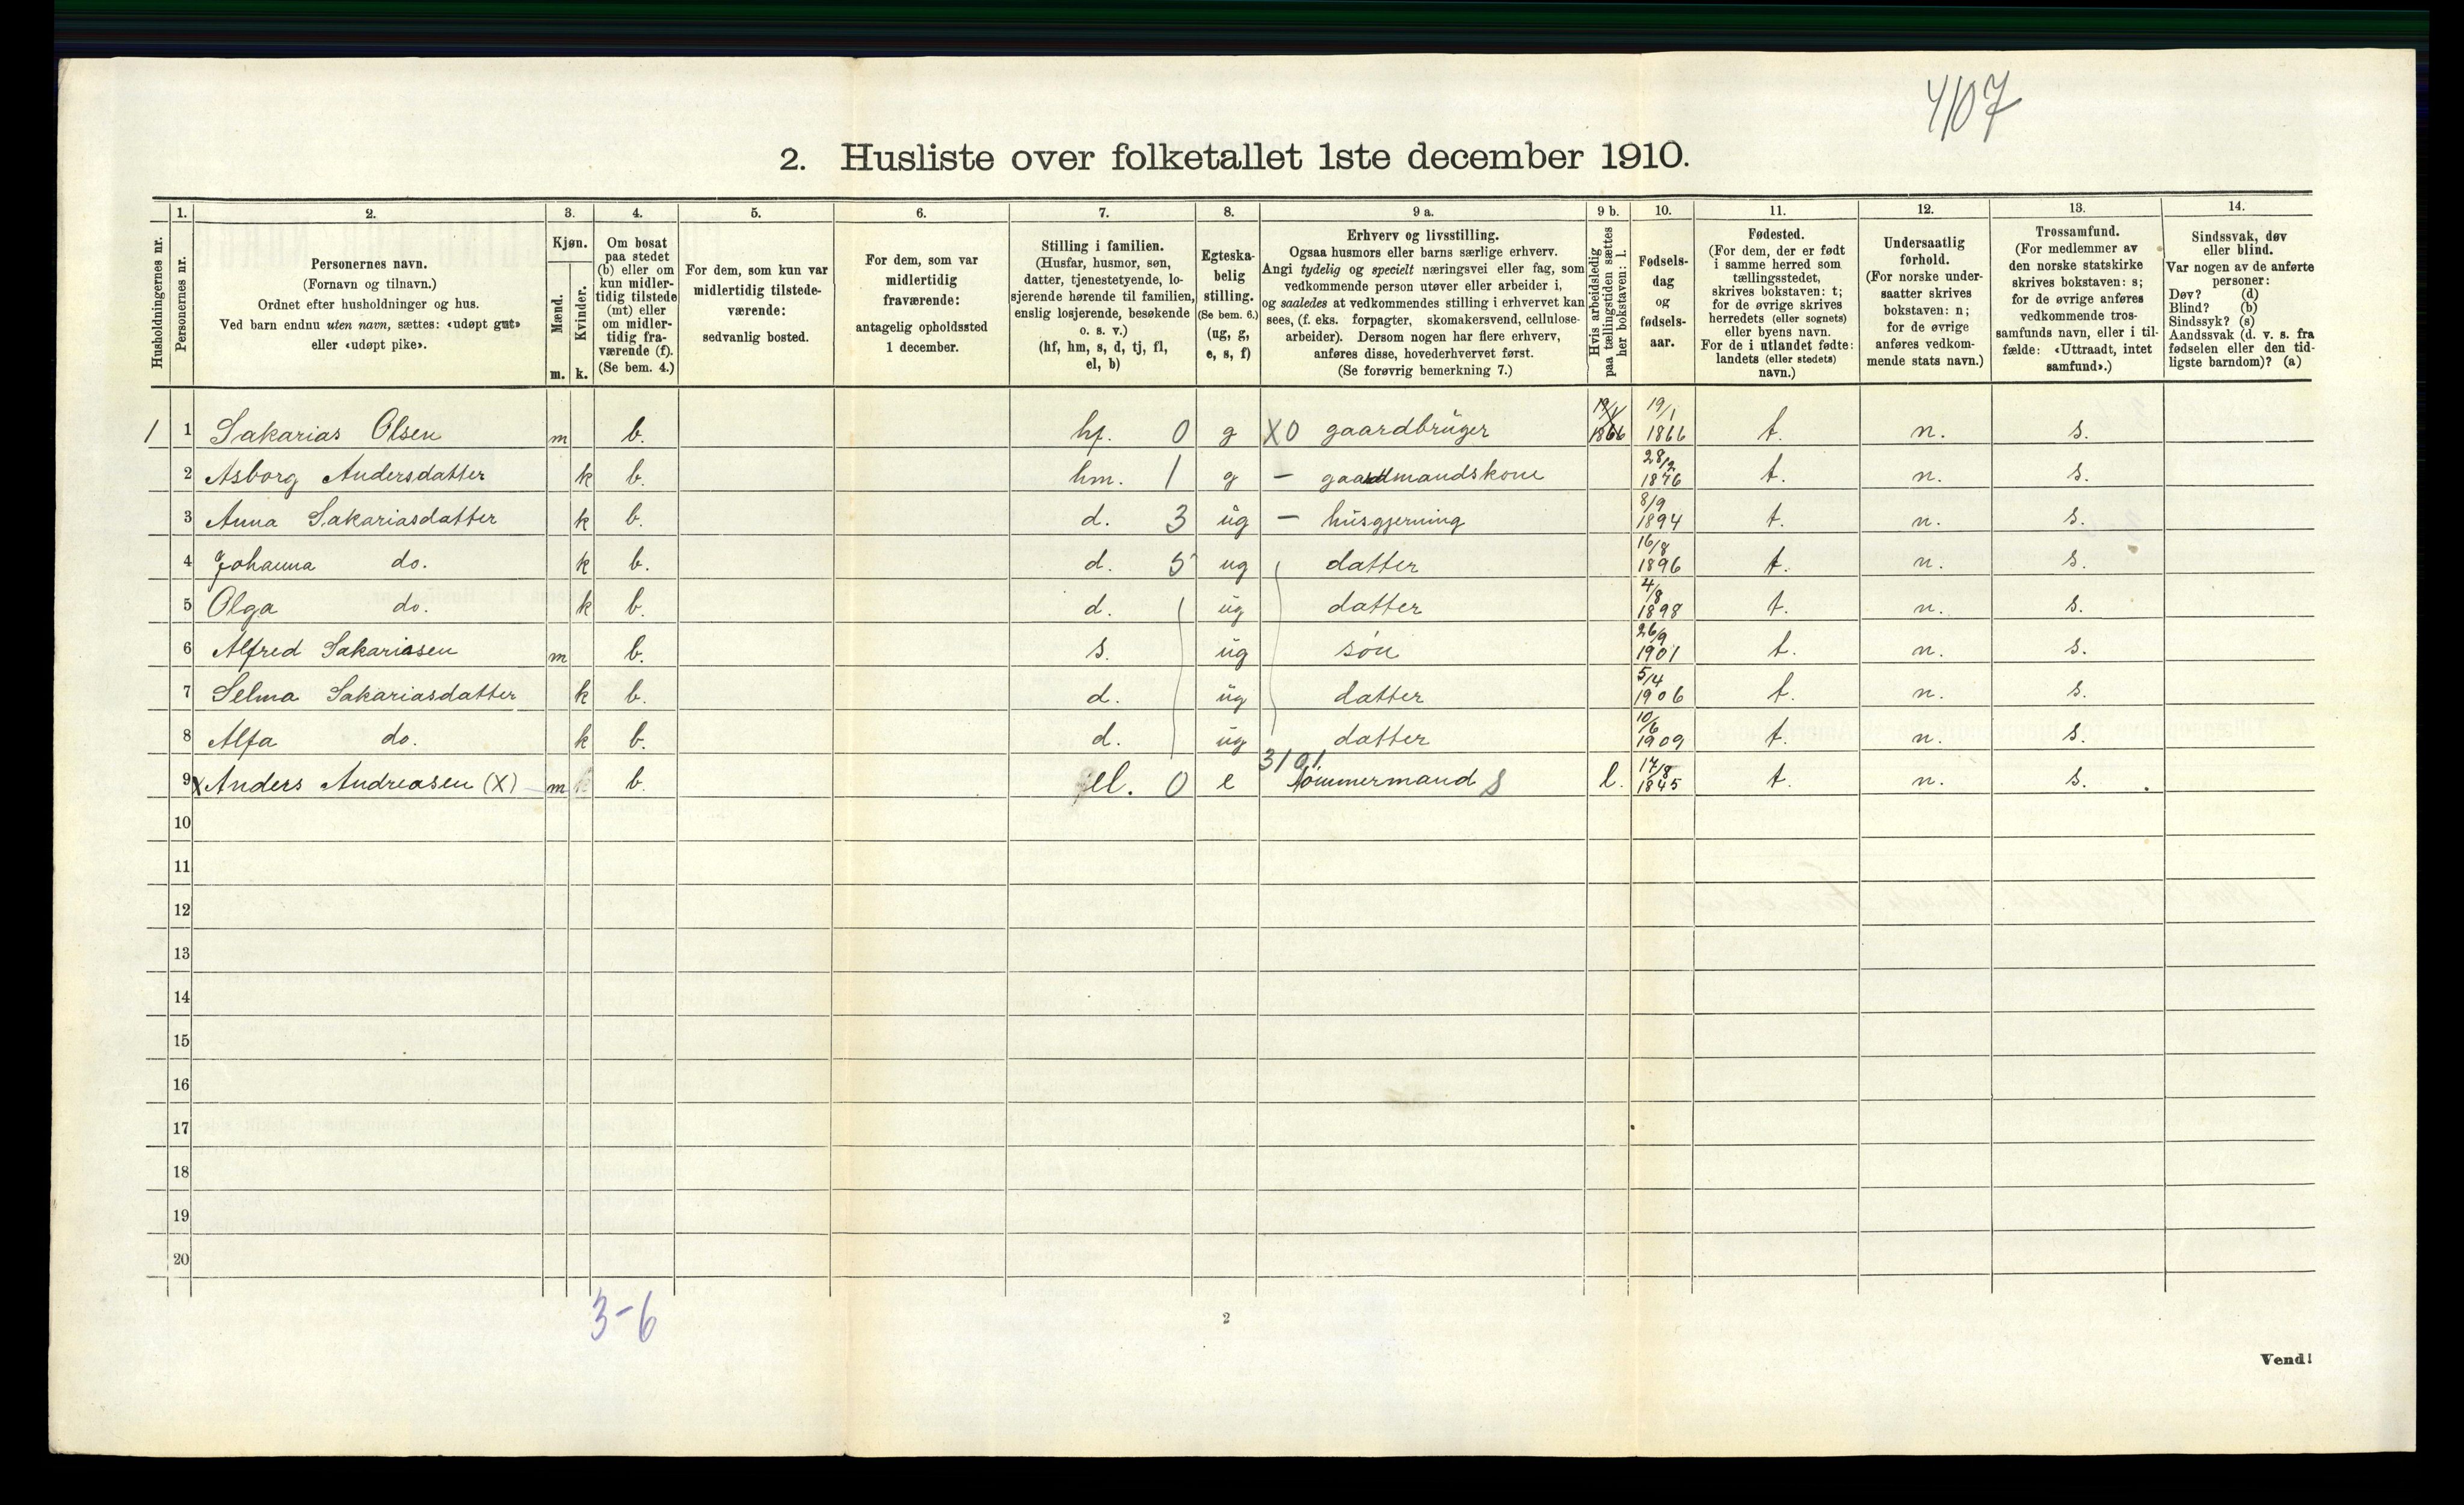 4107
2. Husliste over folketallet 1ste december 1910.
Husholdningernes nr.
1.
Personernes nr.
2.
Personernes navn.
(Fornavn og tilnavn.)
Ordnet efter husholdninger og hus.
Ved barn endnu uten navn, sættes: «udøpt gut»
eller «udøpt pike».
3.
Kjøn.
Mænd.
Kvinder.
m. k.
4.
Om bosat
paa stedet
(b) eller om
kun midler-
tidig tilstede
(mt) eller
om midler-
tidig fra-
værende (f).
(Se bem. 4.)
5.
For dem, som kun var
midlertidig tilstede-
værende:
sedvanlig bosted.
6.
For dem, som var
midlertidig
fraværende:
antagelig opholdssted
1 december.
7.
Stilling i familien.
(Husfar, husmor, søn,
datter, tjenestetyende, lo-
sjerende hørende til familien,
enslig losjerende, besøkende
o. s. v.)
(hf, hm, s, d, tj, fl,
el, b)
8.
Egteska-
belig
stilling.
(Se bem. 6.)
(ug, g,
e, s, f)
9 a.
Erhverv og livsstilling.
Ogsaa husmors eller barns særlige erhverv.
Angi tydelig og specielt næringsvei eller fag, som
vedkommende person utøver eller arbeider i,
og saaledes at vedkommendes stilling i erhvervet kan
sees, (f. eks. forpagter, skomakersvend, cellulose-
arbeider). Dersom nogen har flere erhverv,
anføres disse, hovederhvervet først.
(Se forøvrig bemerkning 7.)
9 b.
Hvis arbeidsledig
paa tællingstiden sættes
her bokstaven: l.
10.
Fødsels-
dag
og
fødsels-
aar.
11.
Fødested.
(For dem, der er født
i samme herred som
tællingsstedet,
skrives bokstaven: t;
for de øvrige skrives
herredets (eller sognets)
eller byens navn.
For de i utlandet fødte:
landets (eller stedets)
navn.)
12.
Undersaatlig
forhold.
(For norske under-
saatter skrives
bokstaven: n;
for de øvrige
anføres vedkom-
mende stats navn.)
13.
Trossamfund.
(For medlemmer av
den norske statskirke
skrives bokstaven: s;
for de øvrige anføres
vedkommende tros-
samfunds navn, eller i til-
fælde: «Uttraadt, intet
samfund».)
14.
Sindssvak, døv
eller blind.
Var nogen av de anførte
personer:
Døv? (d)
Blind? (b)
Sindssyk? (s)
Aandssvak (d. v. s. fra
fødselen eller den tid-
ligste barndom)? (a)
1 1 Sakarias Olsen m b. hf. 0 g X0 gaardbruger 19/1 1866 19/1 1866 t. n. s.
2 Asborg Andersdatter k b. hm. 1 g - gaardmandskone 28/2 1876 t. n. s.
3 Anna Sakariasdatter k b. d. 3 ug - husgjerning 8/9 1894 t. n. s.
4 Johanna do. k b. d. 5 ug datter 16/8 1896 t. n. s.
5 Olga do. k b. d. ug datter 4/8 1898 t. n. s.
6 Alfred Sakariasen m b. s. ug søn 26/9 1901 t. n. s.
7 Selma Sakariasdatter k b. d. ug datter 5/4 1906 t. n. s.
8 Alfa do. k b. d. ug datter 10/6 1909 t. n. s.
9 X Anders Andreasen (X) m b. el. 0 e 3101 tømmermand S l. 17/8 1845 t. n. s.
10
11
12
13
14
15
16
17
18
19
20
3-6
2
Vend!